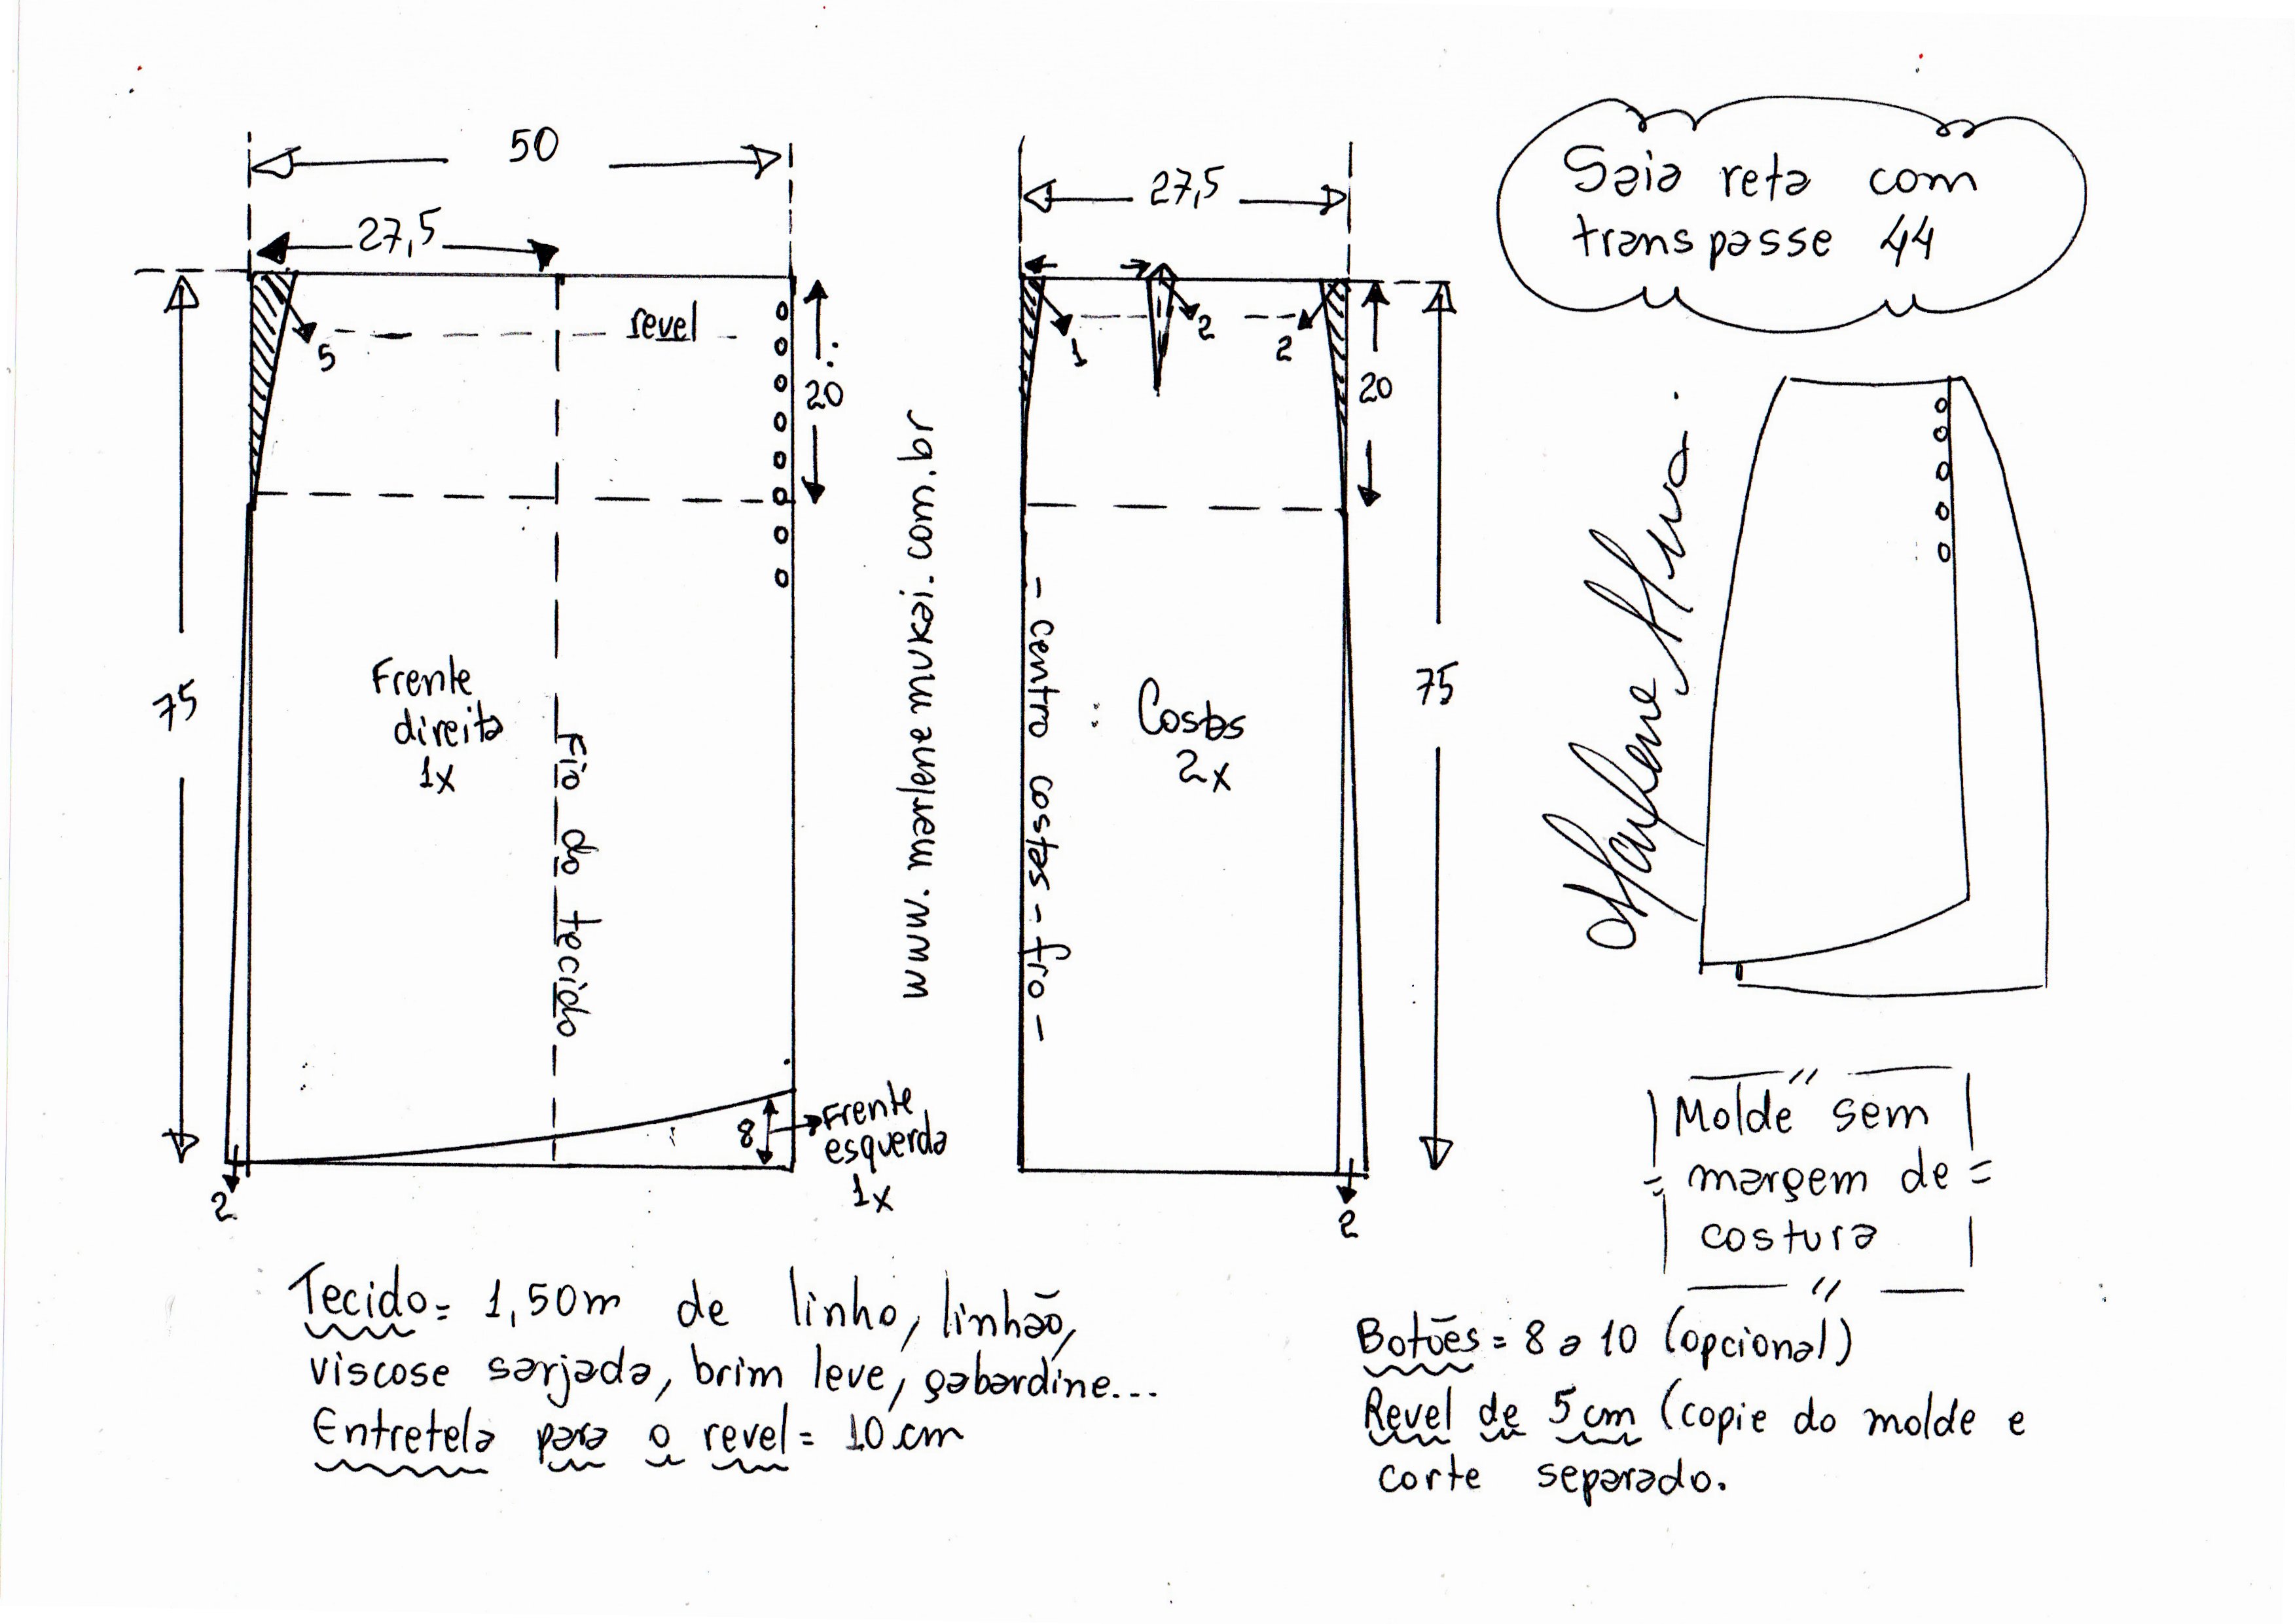 Saia reta com
transpasse 44
50
27,5
5
revel
20
75
Frente
direita
1x
Fio do tecido
8
Frente
esquerda
1x
2
www.marlenemukai.com.br
27,5
1
2
2
20
75
- centro costas - fio -
Costas
2x
2
Marlene Mukai
Molde sem
margem de
costura
Tecido = 1,50m de linho, linhão,
viscose sarjada, brim leve, gabardine...
Entretela para o revel = 10 cm
Botões = 8 a 10 (opcional)
Revel de 5 cm (copie do molde e
corte separado.